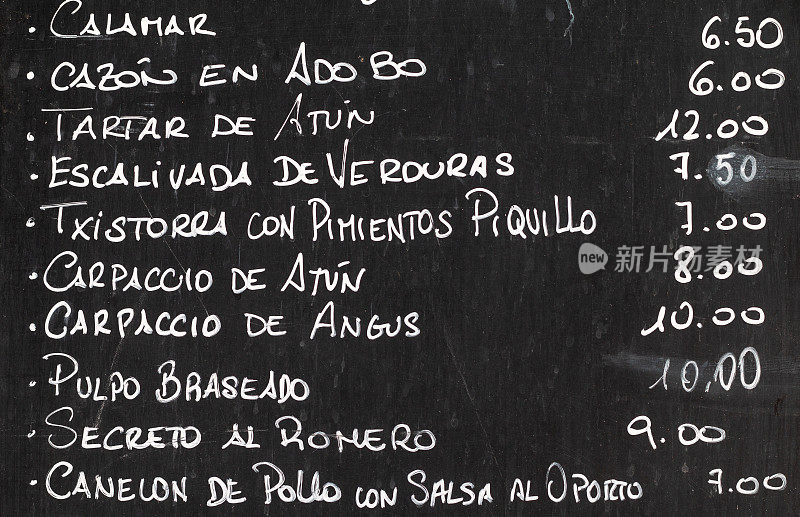 · CALAMAR 6.50
· CAZÓN EN ADOBO 6.00
· TARTAR DE ATÚN 12.00
· ESCALIVADA DE VERDURAS 7.50
· TXISTORRA CON PIMIENTOS PIQUILLO 7.00
· CARPACCIO DE ATÚN 8.00
· CARPACCIO DE ANGUS 10.00
· PULPO BRASEADO 10,00
· SECRETO AL ROMERO 9.00
· CANELON DE POLLO CON SALSA AL OPORTO 7.00
new 新片场素材